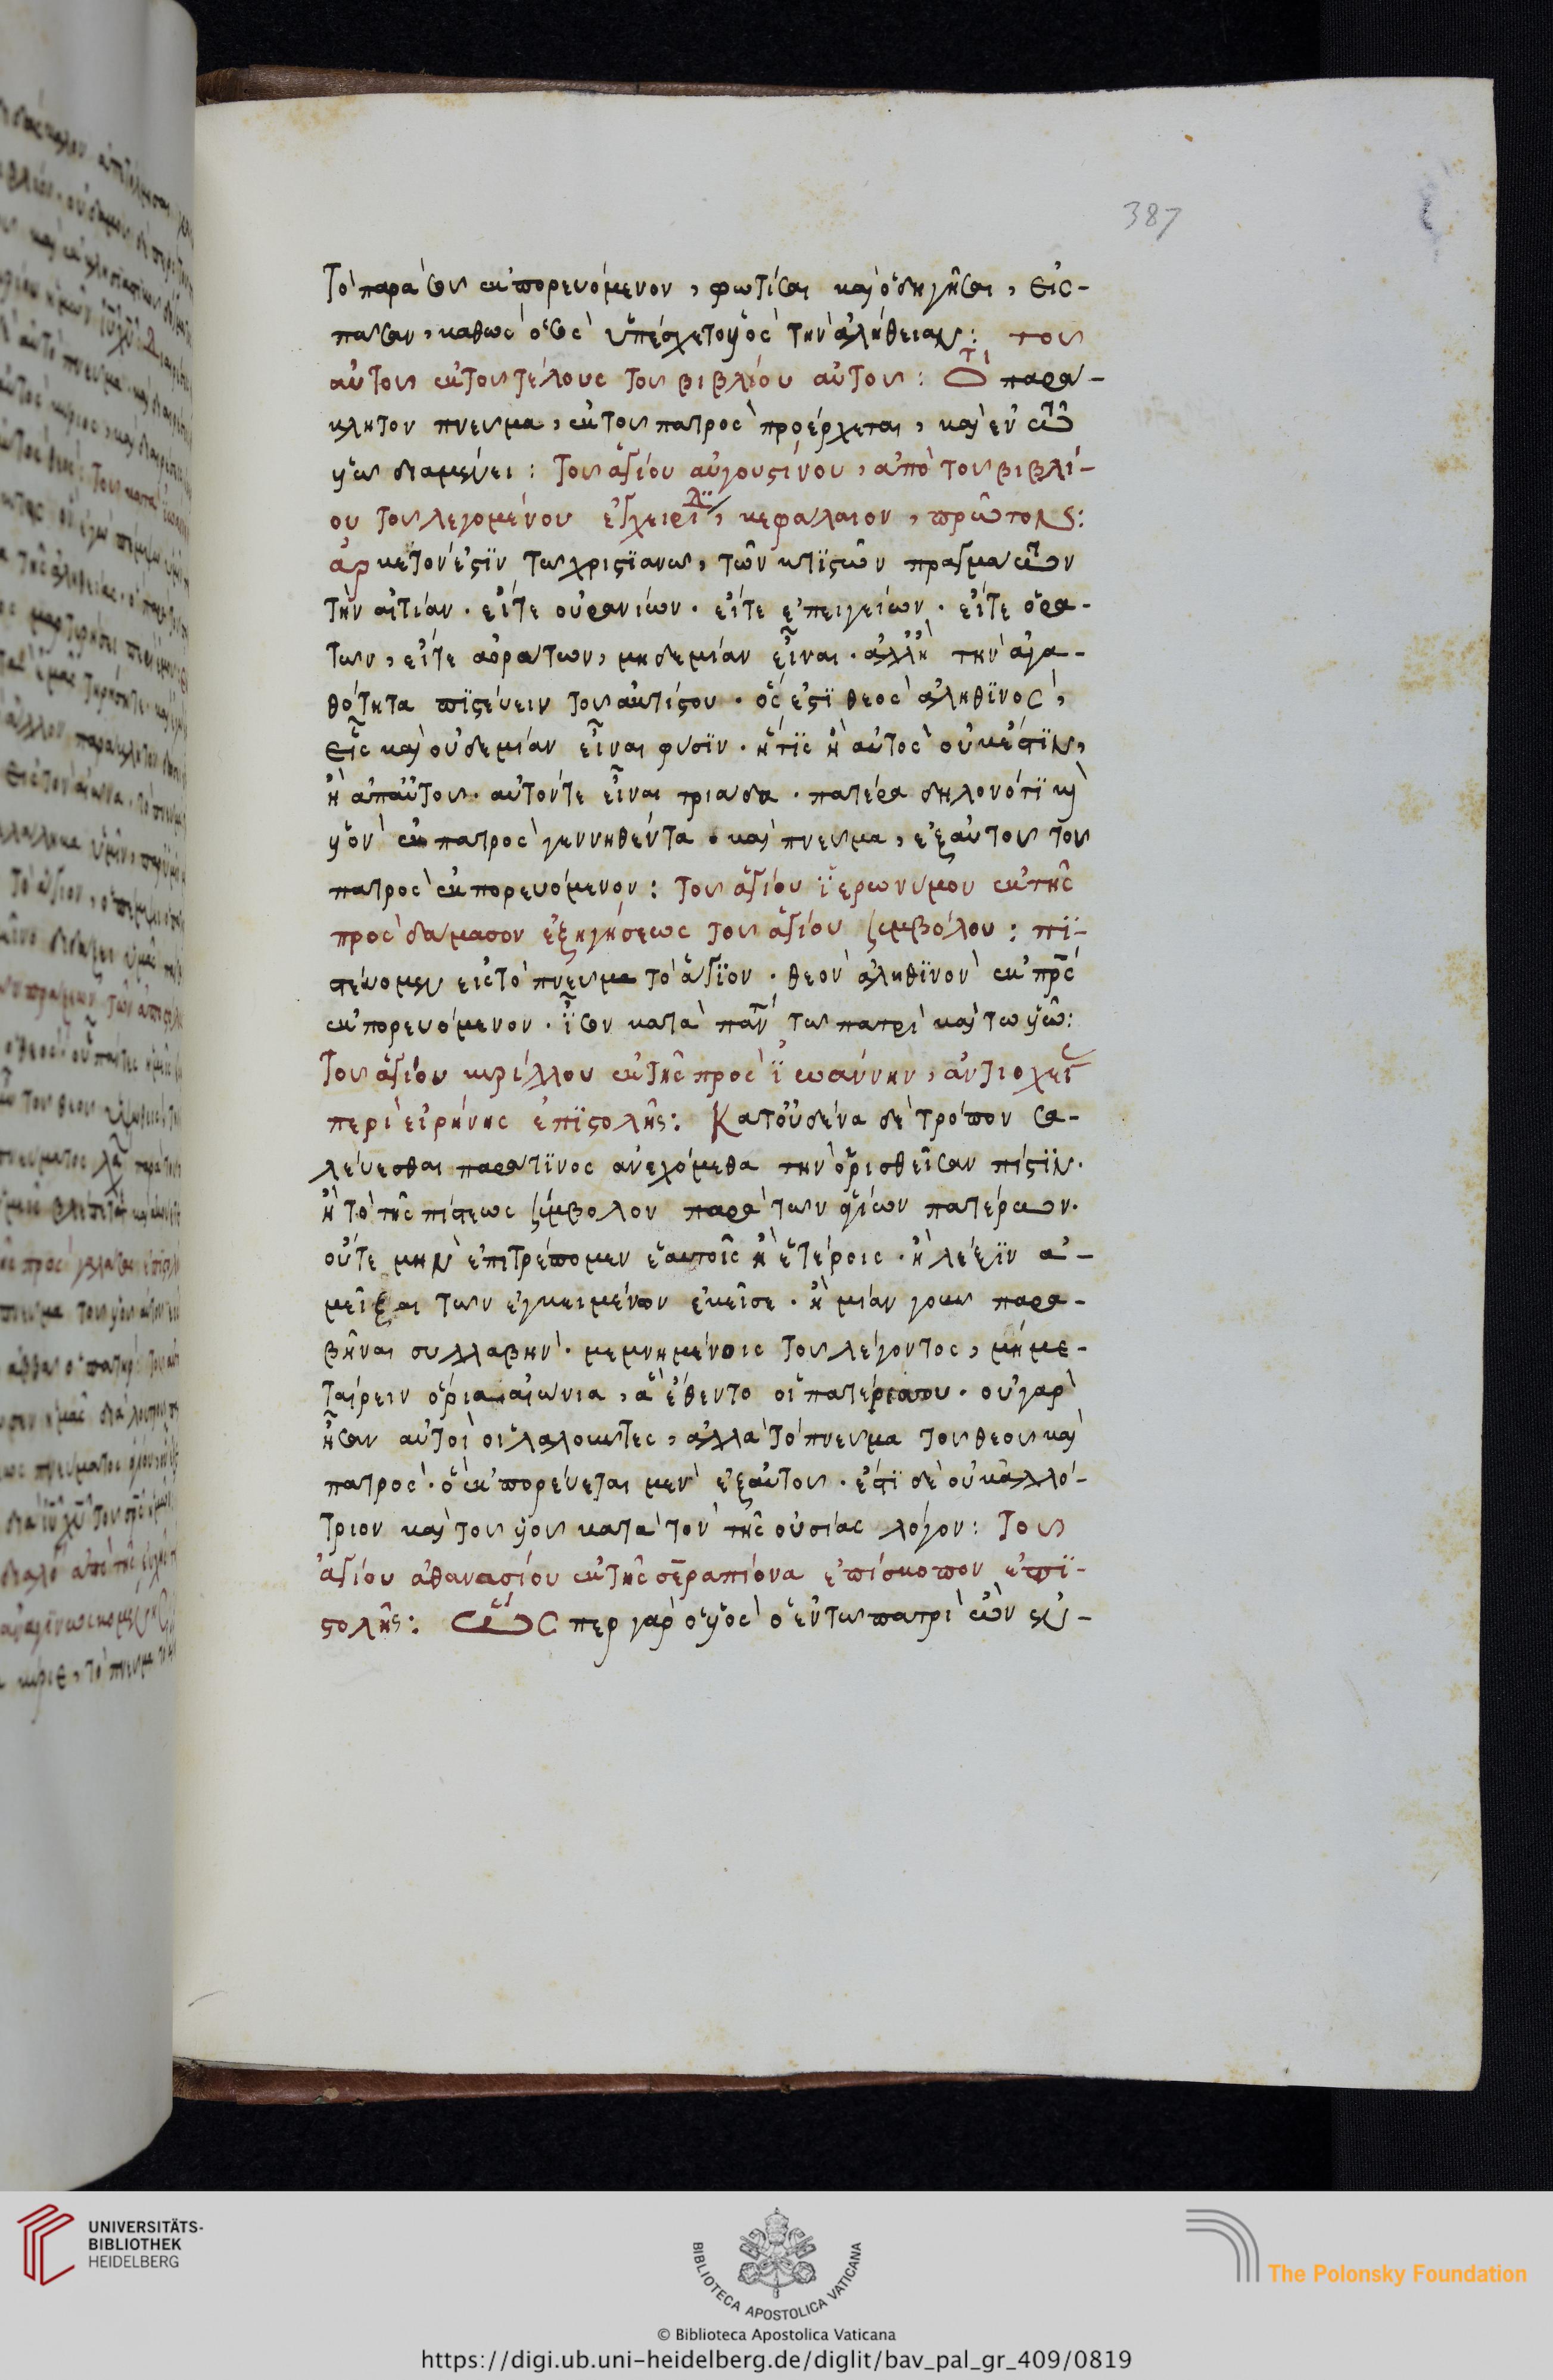 387
Τὸ παρὰ σου ἐκπορευόμενον, φωτίσαι καὶ ὁδηγῆσαι, εἰς-
πασαν, καθὼς ὁ σὸς ὑπέσχετο ϋὸς τὴν ἀλήθειαν: του
αὐτου ἐκ του τέλους του βιβλίου αὐτου: Ὅτι παρά-
κλητον πνευμα, ἐκ του πατρὸς προέρχεται, καὶ ἐν τῶ
ϋῶ διαμένει: Του ἁγίου αὐγουστίνου, ἀπὸ του βιβλί-
ου του λεγομένου ἐγχειρι, κεφάλαιον, πρῶτον:
ἀρκετὸν ἐστϊν τω χριστϊανω, τῶν κτϊστῶν πραγμάτων
τὴν αἰτίαν. εἴτε οὐρανίων. εἴτε ἐπειγείων. εἴτε ὁρα-
των, εἴτε ἀοράτων, μηδεμίαν εἶναι. ἀλλ' ἢ τὴν ἀγα-
θότητα πϊστεύειν του ἀκτίστου. ὅς ἐστϊ θεὸς ἀληθϊνὸς,
εἷς καὶ οὐδεμίαν εἶναι φυσϊν. ἥτϊς ἢ αὐτὸς οὐκ ἐστϊν,
ἢ ἀπ' αὐτου. αὐτόν τε εἶναι τριάδα. πατέρα δηλονότϊ κὶ
ϋὸν ἐκ πατρὸς γεννηθέντα. καὶ πνευμα, ἐξ αὐτου του
πατρὸς ἐκπορευόμενον: Του ἁγίου ϊερωνύμου ἐκ τῆς
πρὸς δάμασον ἐξηγήσεως του ἁγίου συμβόλου: πϊ-
στεύομεν εἰς τὸ πνευμα τὸ ἅγϊον. θεὸν ἀληθϊνὸν ἐκ πρς
ἐκπορευόμενον. ϊσον κατὰ πᾶν τω πατρὶ καὶ τω ϋῶ:
Του ἁγίου κυρίλλου ἐκ τῆς πρὸς ϊωάννην, ἀντιοχεί
περὶ εἰρήνης ἐπϊστολῆς: Κατ' οὐδένα δὲ τρόπον σα-
λεύεσθαι παρά τϊνος ἀνεχόμεθα τὴν ὁρισθεῖσαν πίστϊν.
ἢ τὸ τῆς πίστεως σύμβολον παρὰ των ἁγίων πατέρων.
οὔτε μὴν ἐπιτρέπομεν ἑαυτοῖς ἢ ἑτέροις. ἢ λέξϊν ἀ-
μεῖξαι των ἐγκειμένων ἐκεῖσε. ἢ μίαν γουν παρα-
βῆναι συλλαβὴν. μεμνημένοις του λέγοντος, μὴ με-
ταίρειν ὅρια αἰώνια, ἃ ἔθεντο οἱ πατέρές σου. οὐ γὰρ
ἦσαν αὐτοὶ οἱ λαλουντες, ἀλλὰ τὸ πνευμα του θεου καὶ
πατρὸς. ὃ ἐκπορεύεται μεν ἐξ αὐτου. ἐστϊ δὲ οὐκ ἀλλό-
τριον καὶ του ϋου κατὰ τὸν τῆς οὐσίας λόγον: Του
ἁγίου ἀθανασίου ἐκ τῆς σεραπίονα ἐπίσκοπον ἐπϊ-
στολῆς: Ὥσπερ γὰρ ὁ ϋὸς ὁ ἐν τω πατρὶ ὢν ἐν ὧ-
UNIVERSITÄTS-
BIBLIOTHEK
HEIDELBERG
BIBLIOTECA APOSTOLICA VATICANA
The Polonsky Foundation
© Biblioteca Apostolica Vaticana
https://digi.ub.uni-heidelberg.de/diglit/bav_pal_gr_409/0819